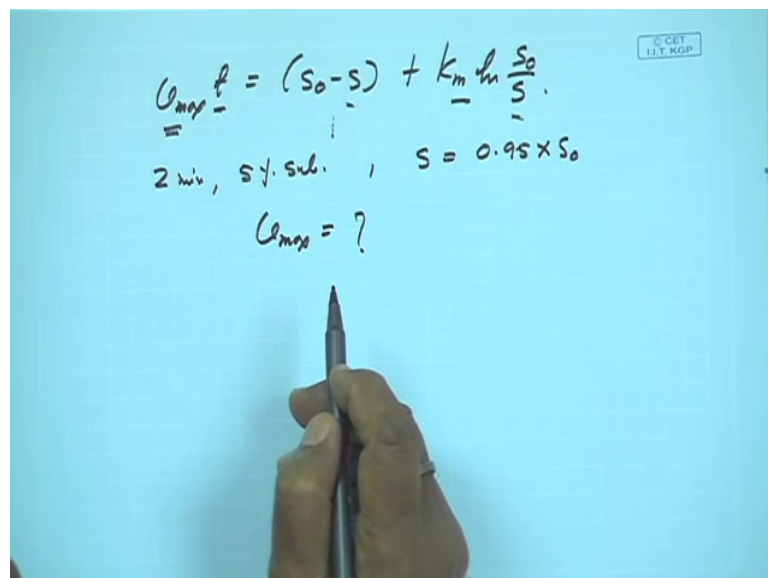 © CET
I.I.T. KGP
υmax t = (S0 - S) + km ln S0/S.
2 min, 5 % sub. , S = 0.95 × S0
υmax = ?